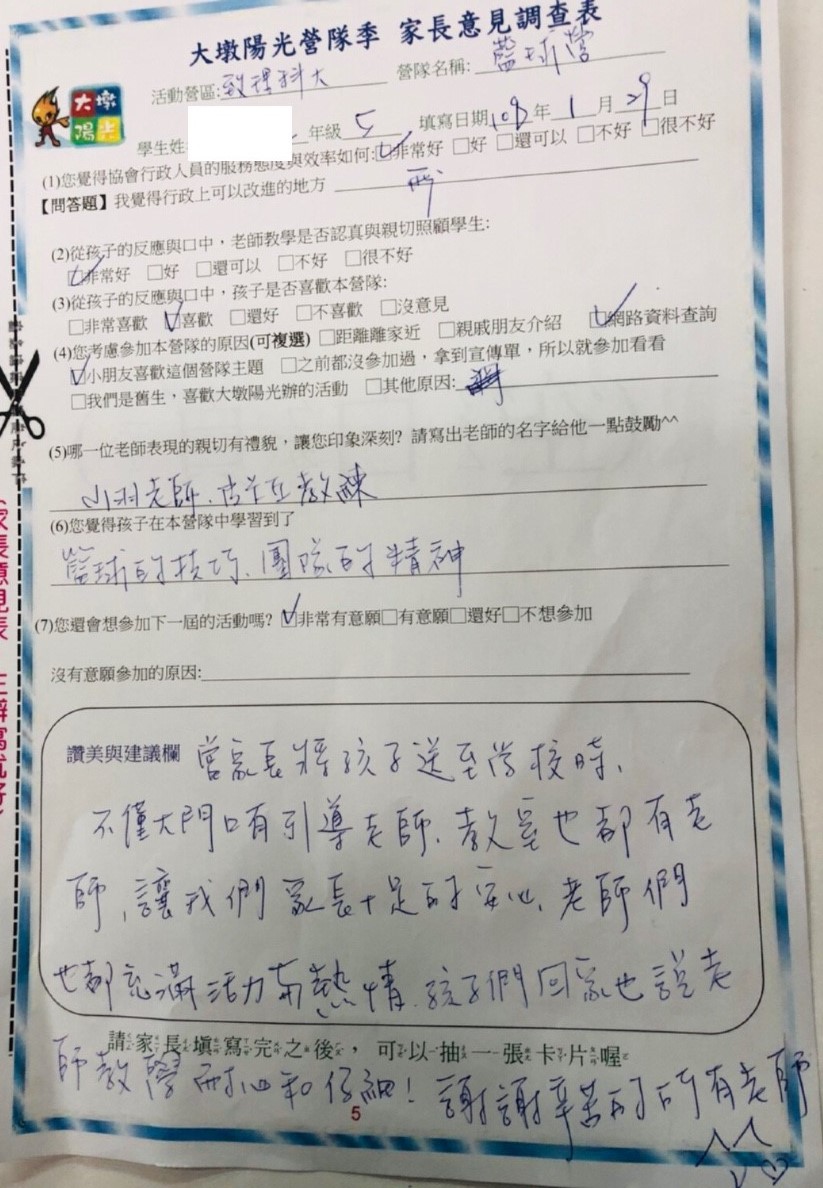 大墩陽光營隊季 家長意見調查表
大墩
陽光
活動營區:致理科大 營隊名稱:籃球營
學生姓 年級 5 填寫日期 109 年 1 月 29 日
(1)您覺得協會行政人員的服務態度與效率如何:☑非常好 □好 □還可以 □不好 □很不好
【問答題】我覺得行政上可以改進的地方
(2)從孩子的反應與口中，老師教學是否認真與親切照顧學生:
☑非常好 □好 □還可以 □不好 □很不好
(3)從孩子的反應與口中，孩子是否喜歡本營隊:
□非常喜歡 ☑喜歡 □還好 □不喜歡 □沒意見
(4)您考慮參加本營隊的原因(可複選) □距離離家近 □親戚朋友介紹 ☑網路資料查詢
☑小朋友喜歡這個營隊主題 □之前都沒參加過，拿到宣傳單，所以就參加看看
□我們是舊生，喜歡大墩陽光辦的活動 □其他原因:
(5)哪一位老師表現的親切有禮貌，讓您印象深刻? 請寫出老師的名字給他一點鼓勵^^
小羽老師、 教練
(6)您覺得孩子在本營隊中學習到了
籃球的技巧、團隊的精神
(7)您還會想參加下一屆的活動嗎? ☑非常有意願□有意願□還好□不想參加
沒有意願參加的原因:
讚美與建議欄 當家長將孩子送至學校時、
不僅大門口有引導老師、教室也都有老
師、讓我們家長十足的安心、老師們
也都充滿活力與熱情、孩子們回家也說老
請家長填寫完之後，可以抽一張卡片喔
師教學耐心和仔細! 謝謝辛苦的所有老師
^^
5
家長意見表